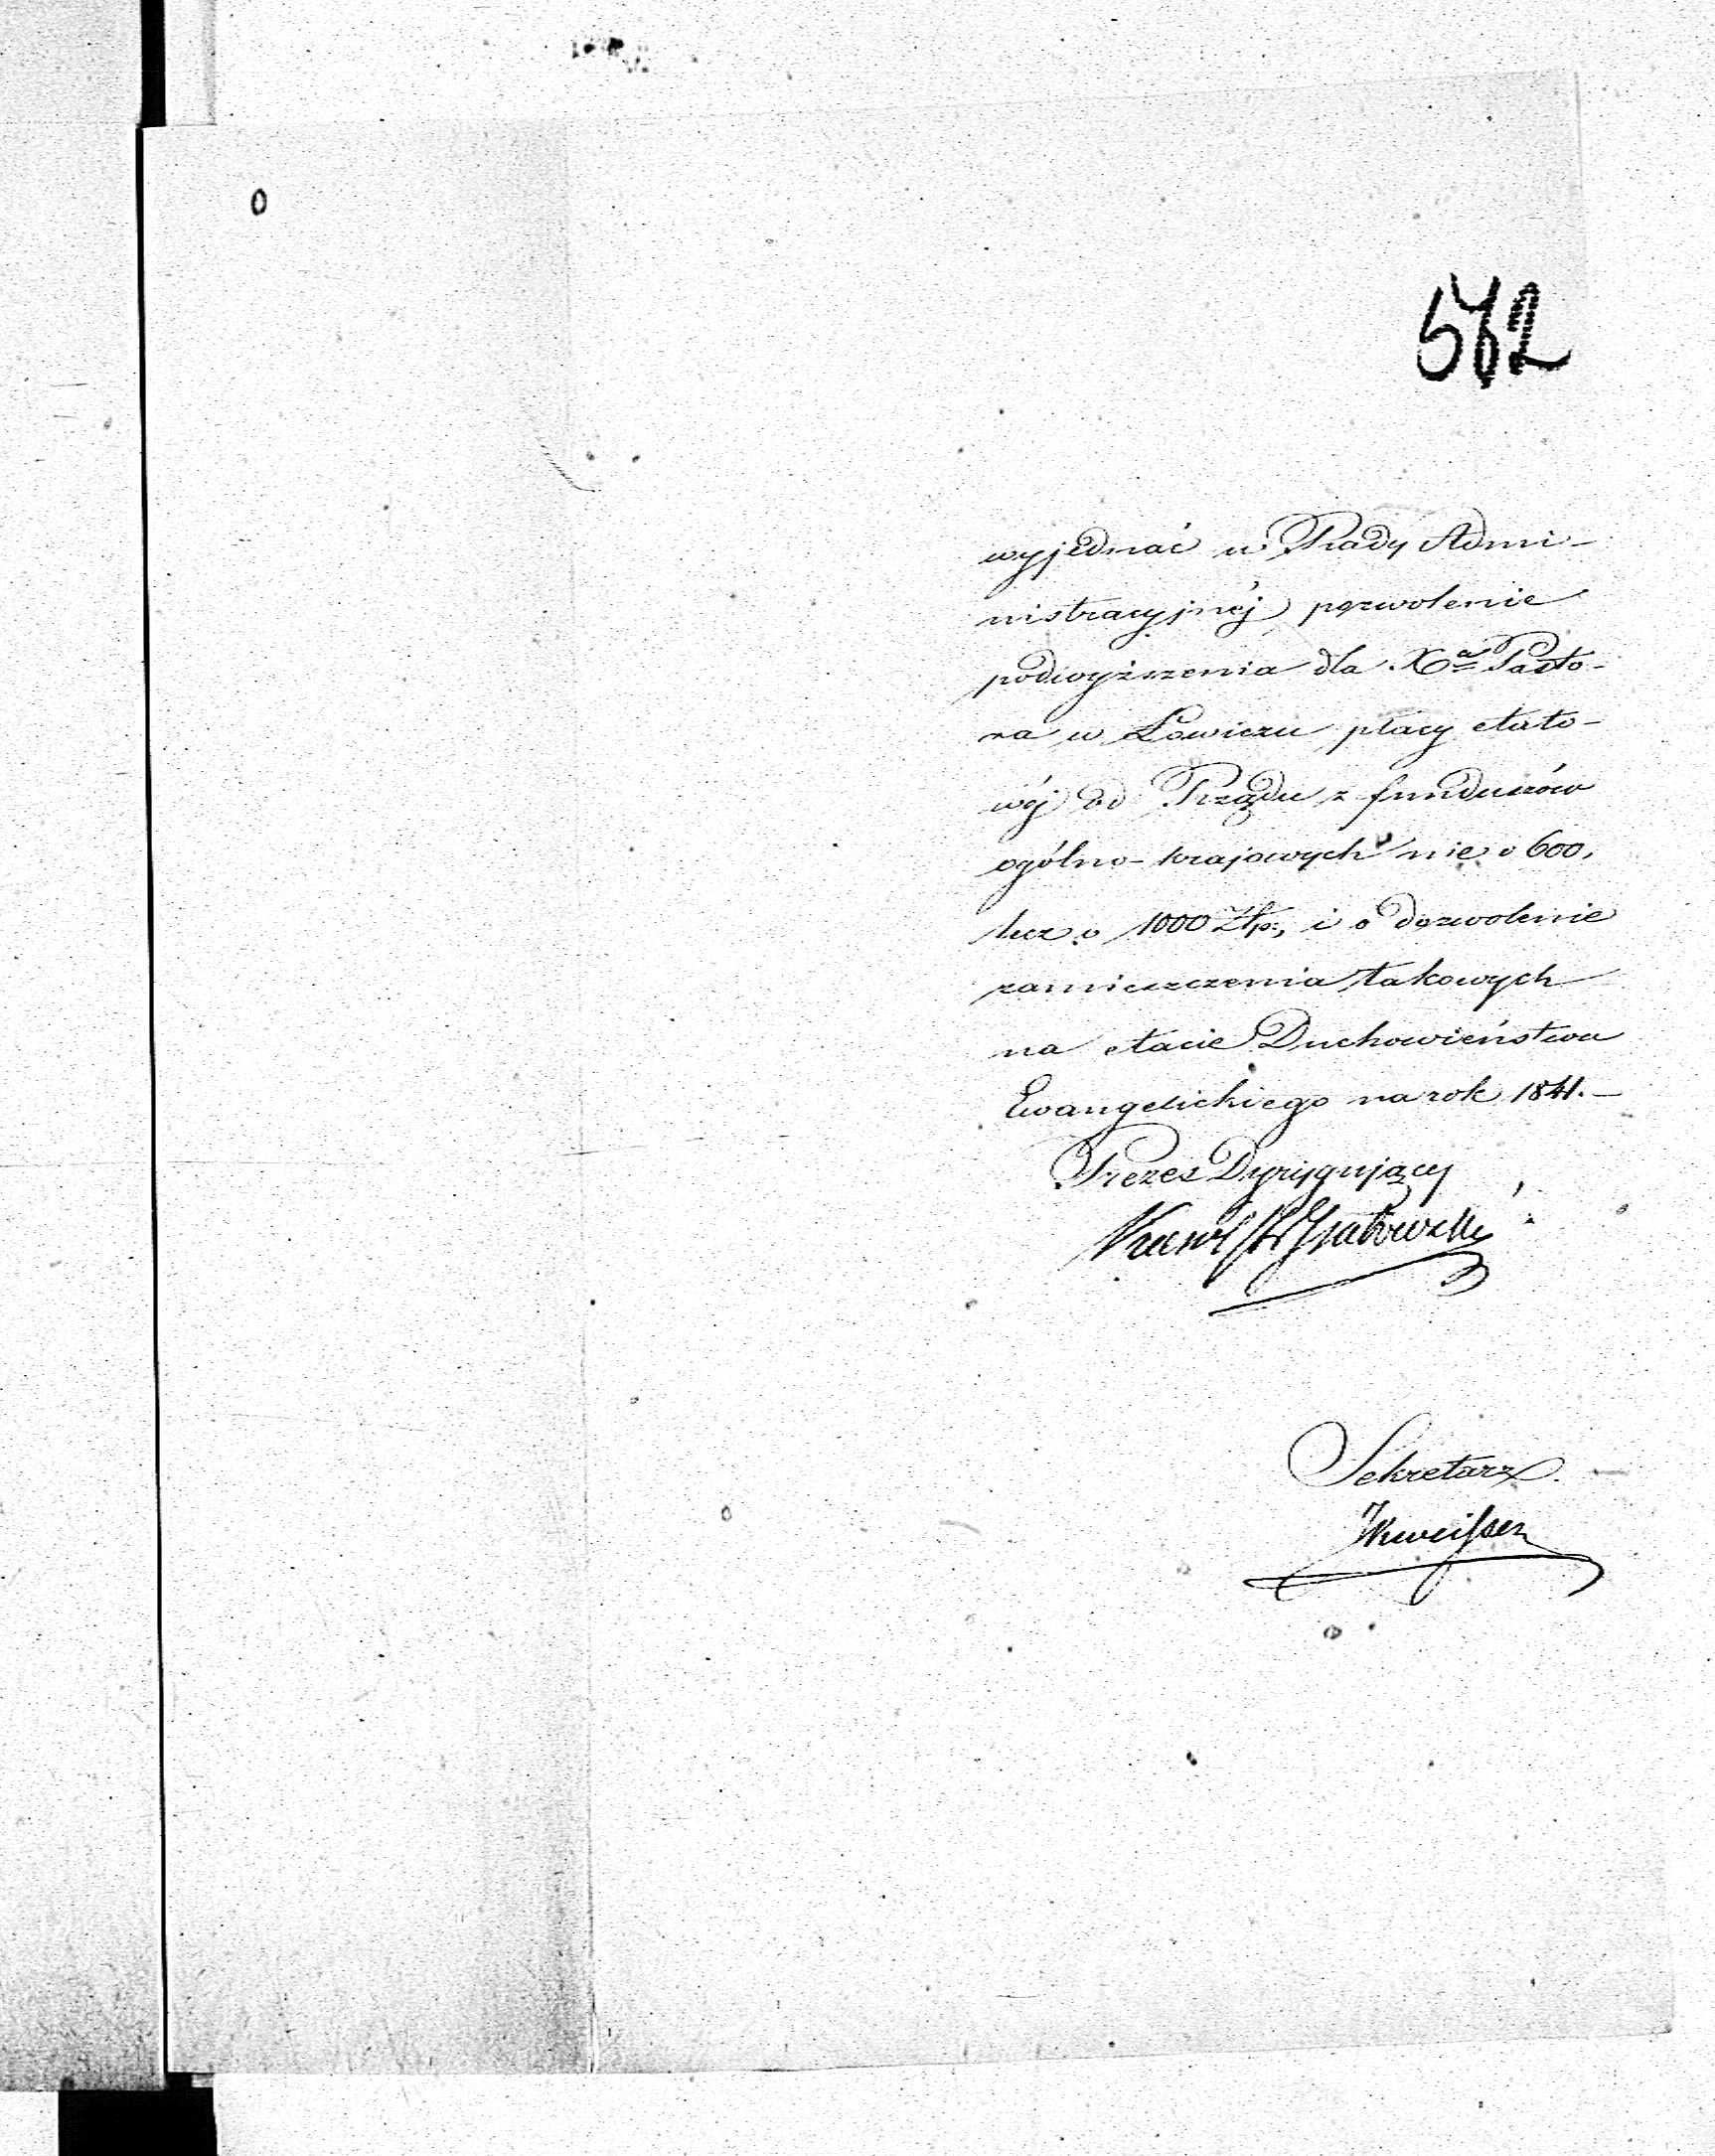 572
wyjednać u Rady Admi-
nistracyjnéj pozwolenie
podwyższenia dla Xa Pasto-
ra w Łowiczu płacy etato-
wéj od Rządu z funduszów
ogólno-krajowych nie o 600,
lecz o 1000 Złp:, i o dozwolenie
zamieszczenia takowych
na etacie Duchowieństwa
Ewangelickiego na rok 1841.-
Prezes Dyrygujący
Grabowski
Sekretarz